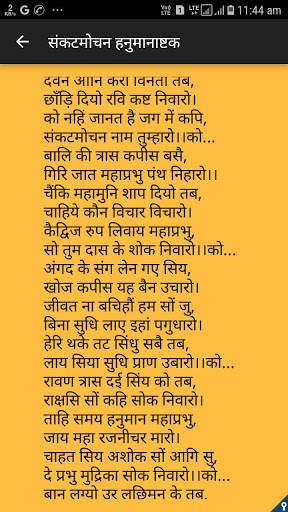 2 K/s VoLTE LTE 11:44 am
संकटमोचन हनुमानाष्टक
देवन आनि करी विनती तब,
छाँड़ि दियो रवि कष्ट निवारो।
को नहिं जानत है जग में कपि,
संकटमोचन नाम तुम्हारो।।को...
बालि की त्रास कपीस बसै,
गिरि जात महाप्रभु पंथ निहारो।।
चौंकि महामुनि शाप दियो तब,
चाहिये कौन विचार विचारो।
कैद्विज रुप लिवाय महाप्रभु,
सो तुम दास के शोक निवारो।।को...
अंगद के संग लेन गए सिय,
खोज कपीस यह बैन उचारो।
जीवत ना बचिहौं हम सों जु,
बिना सुधि लाए इहां पगुधारो।
हेरि थके तट सिंधु सबै तब,
लाय सिया सुधि प्राण उबारो।।को...
रावण त्रास दई सिंय को तब,
राक्षसि सों कहि सोक निवारो।
ताहि समय हनुमान महाप्रभु,
जाय महा रजनीचर मारो।
चाहत सिय अशोक सों आगि सु,
दे प्रभु मुद्रिका सोक निवारो।।को...
बान लग्यो उर लछिमन के तब.